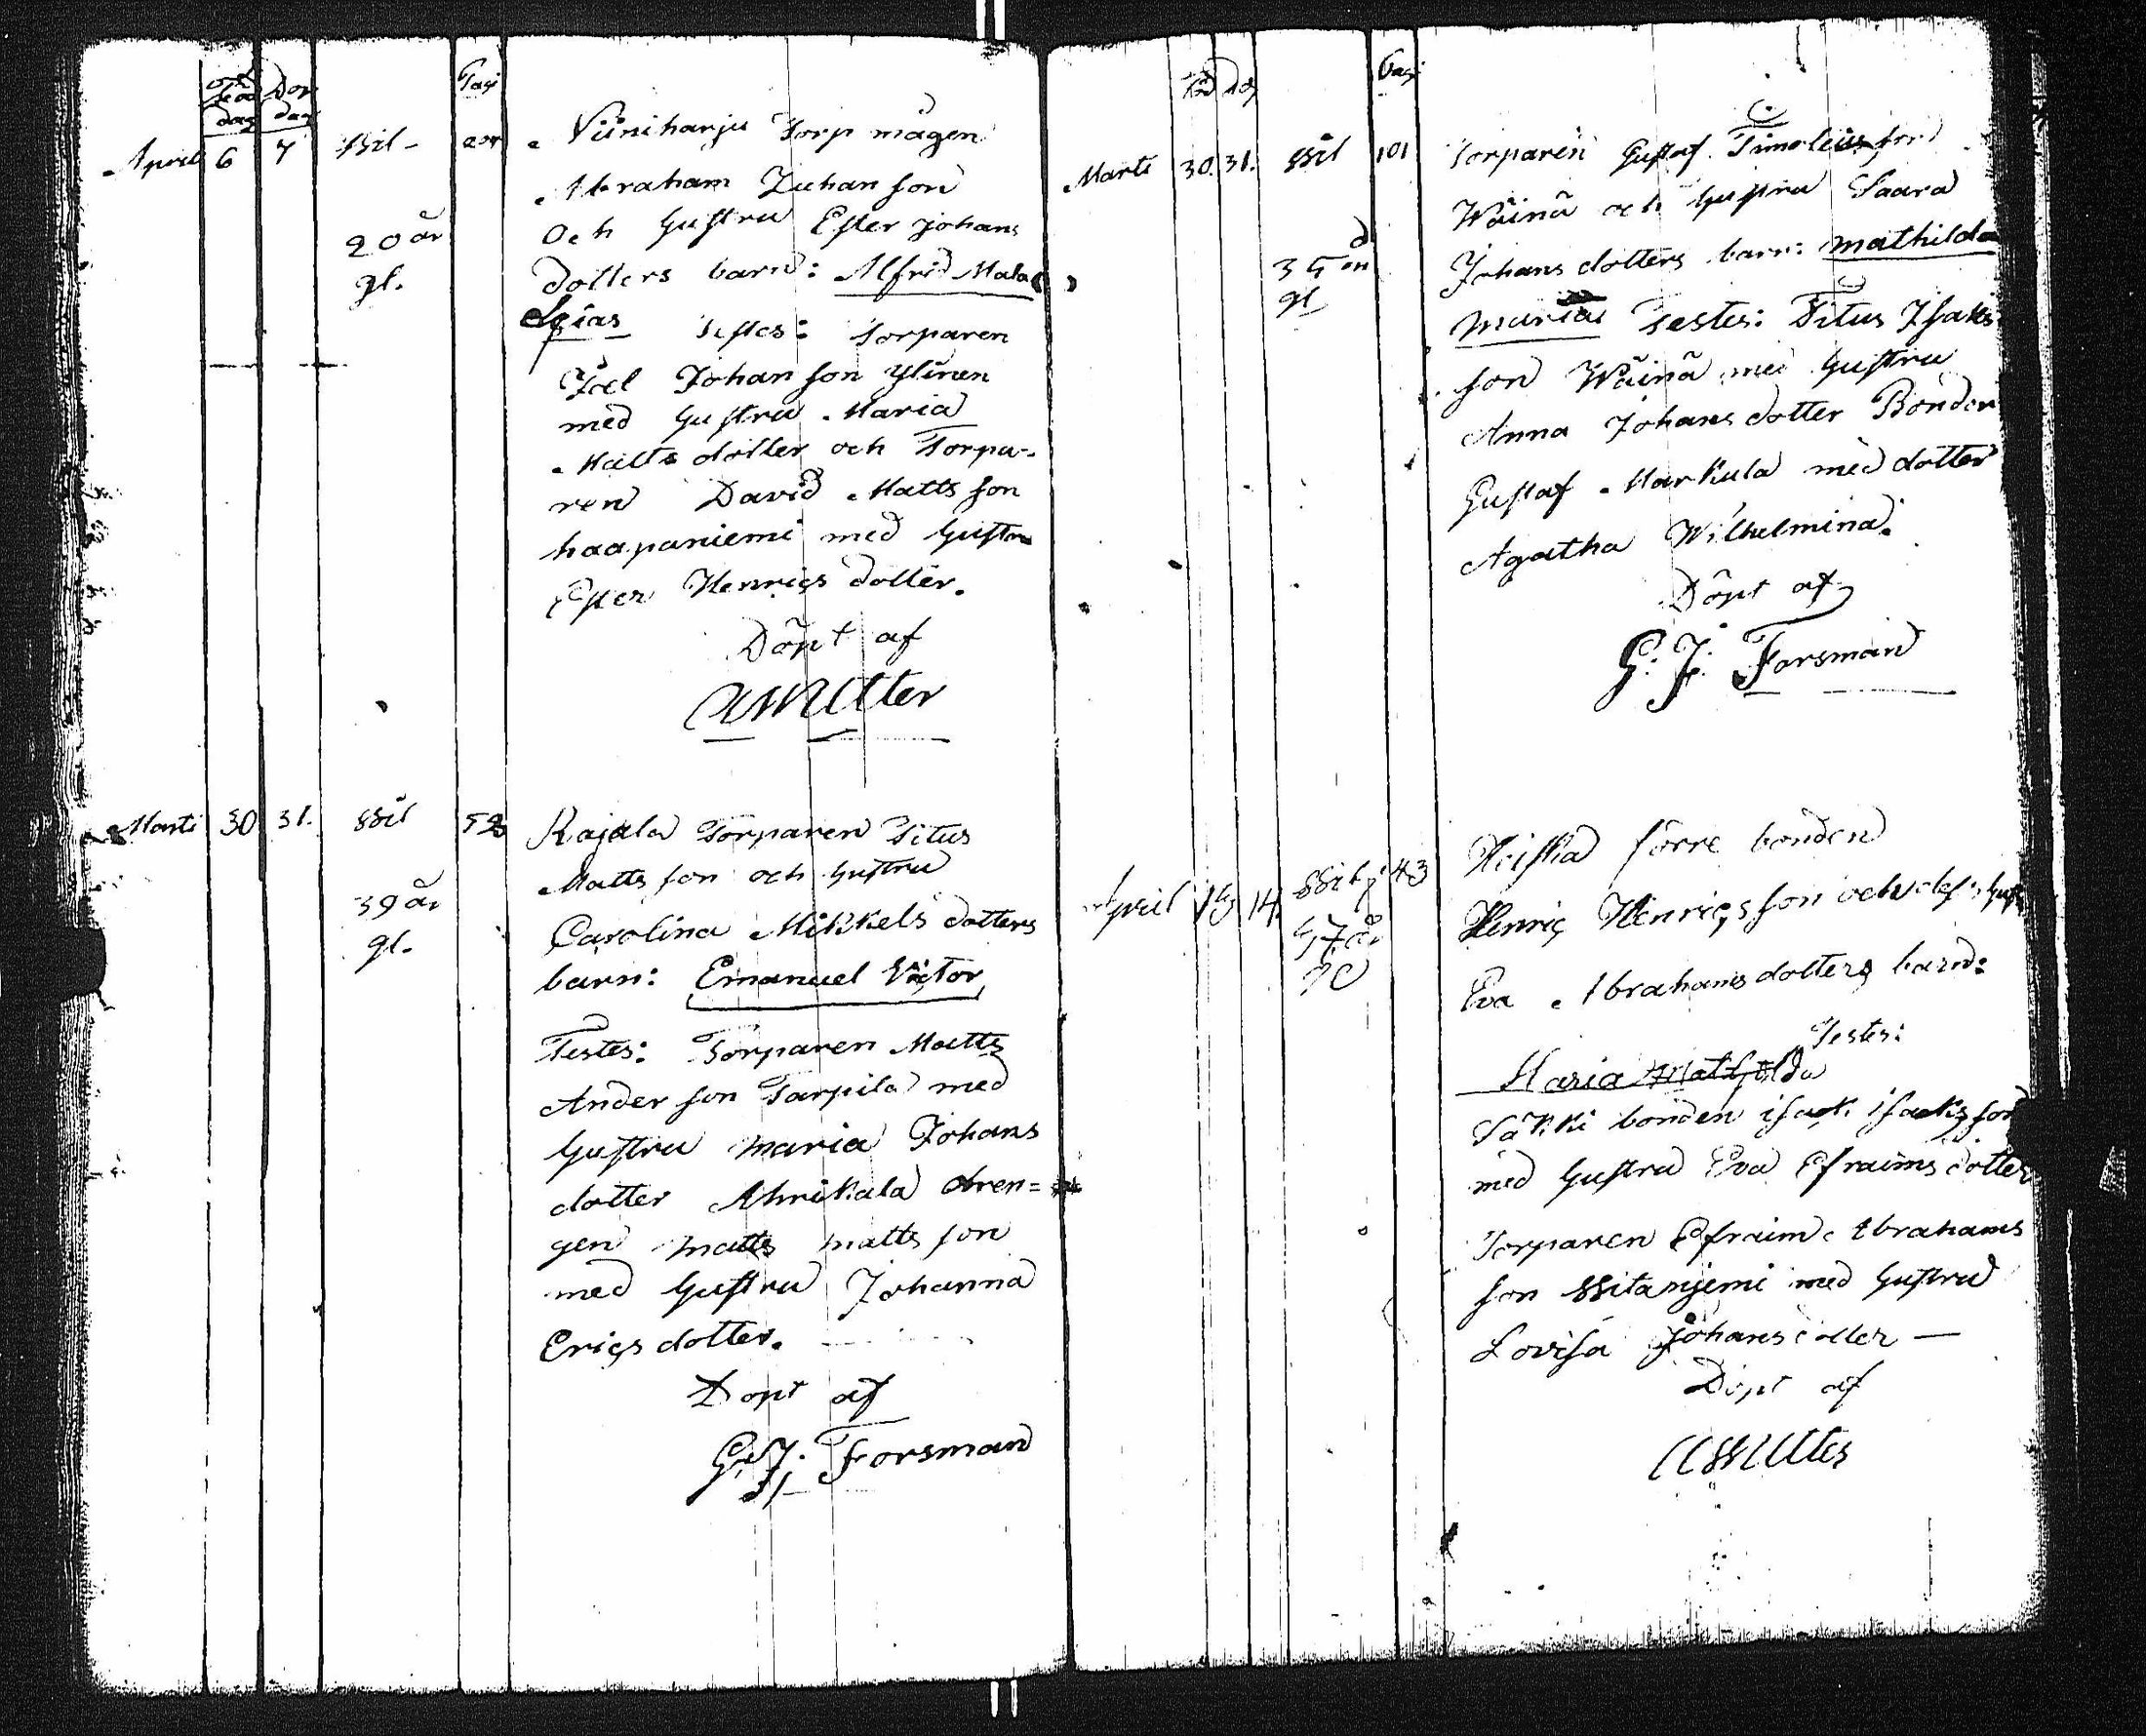 Föd dag Döp dag Pagi
April 6 7
Viiniharju Torp mågen
Abraham Juhan son
20 år
och hustru Ester Johans
gl.
dotters barn: Alfrid Mala
kias Testes: Torparen
Joel Johan son Ylinen
med hustru Maria
Matts dotter och Torpa-
ren David Matts son
haapaniemi med hustru
Ester Henrics dotter.
Döpt af
Marti 30 31.
Rajala Torparen Titus
Matts son och hustru
39 år
Carolina Mikkels dotters
gl.
barn: Emanuel Victor
Testes: Torparen Matts
Ander son Tarpila med
hustru Maria Johans
dotter Ahrikala dren=
gen matts matts son
med hustru Johanna
Erics dotter.
Döpt af
G. J. Forsman
Föd Döp Pagi
Marti 30. 31. 101
Torparen Gustaf son
Wäinä och hustru Saara
35 år
Johans dotters barn: Mathilda
gl
Maria Testes: Titus Isaks
son Wäinä med hustru
Anna Johans dotter Bonden
Gustaf Markula med dotter
Agatha Wilhelmina.
Döpt af
G. J. Forsman
Heiska förre bonden
April 14. 43
Henric Henrics son och des hust
47 år
Eva Abrahams dotters barn:
Testes:
Maria Mathilda
Säkki bonden isack isacks son
med hustru Eva Efraims dotter
Torparen Efraim Abrahams
son Sitaniemi med hustru
Lovisa Johans dotter —
Döpt af